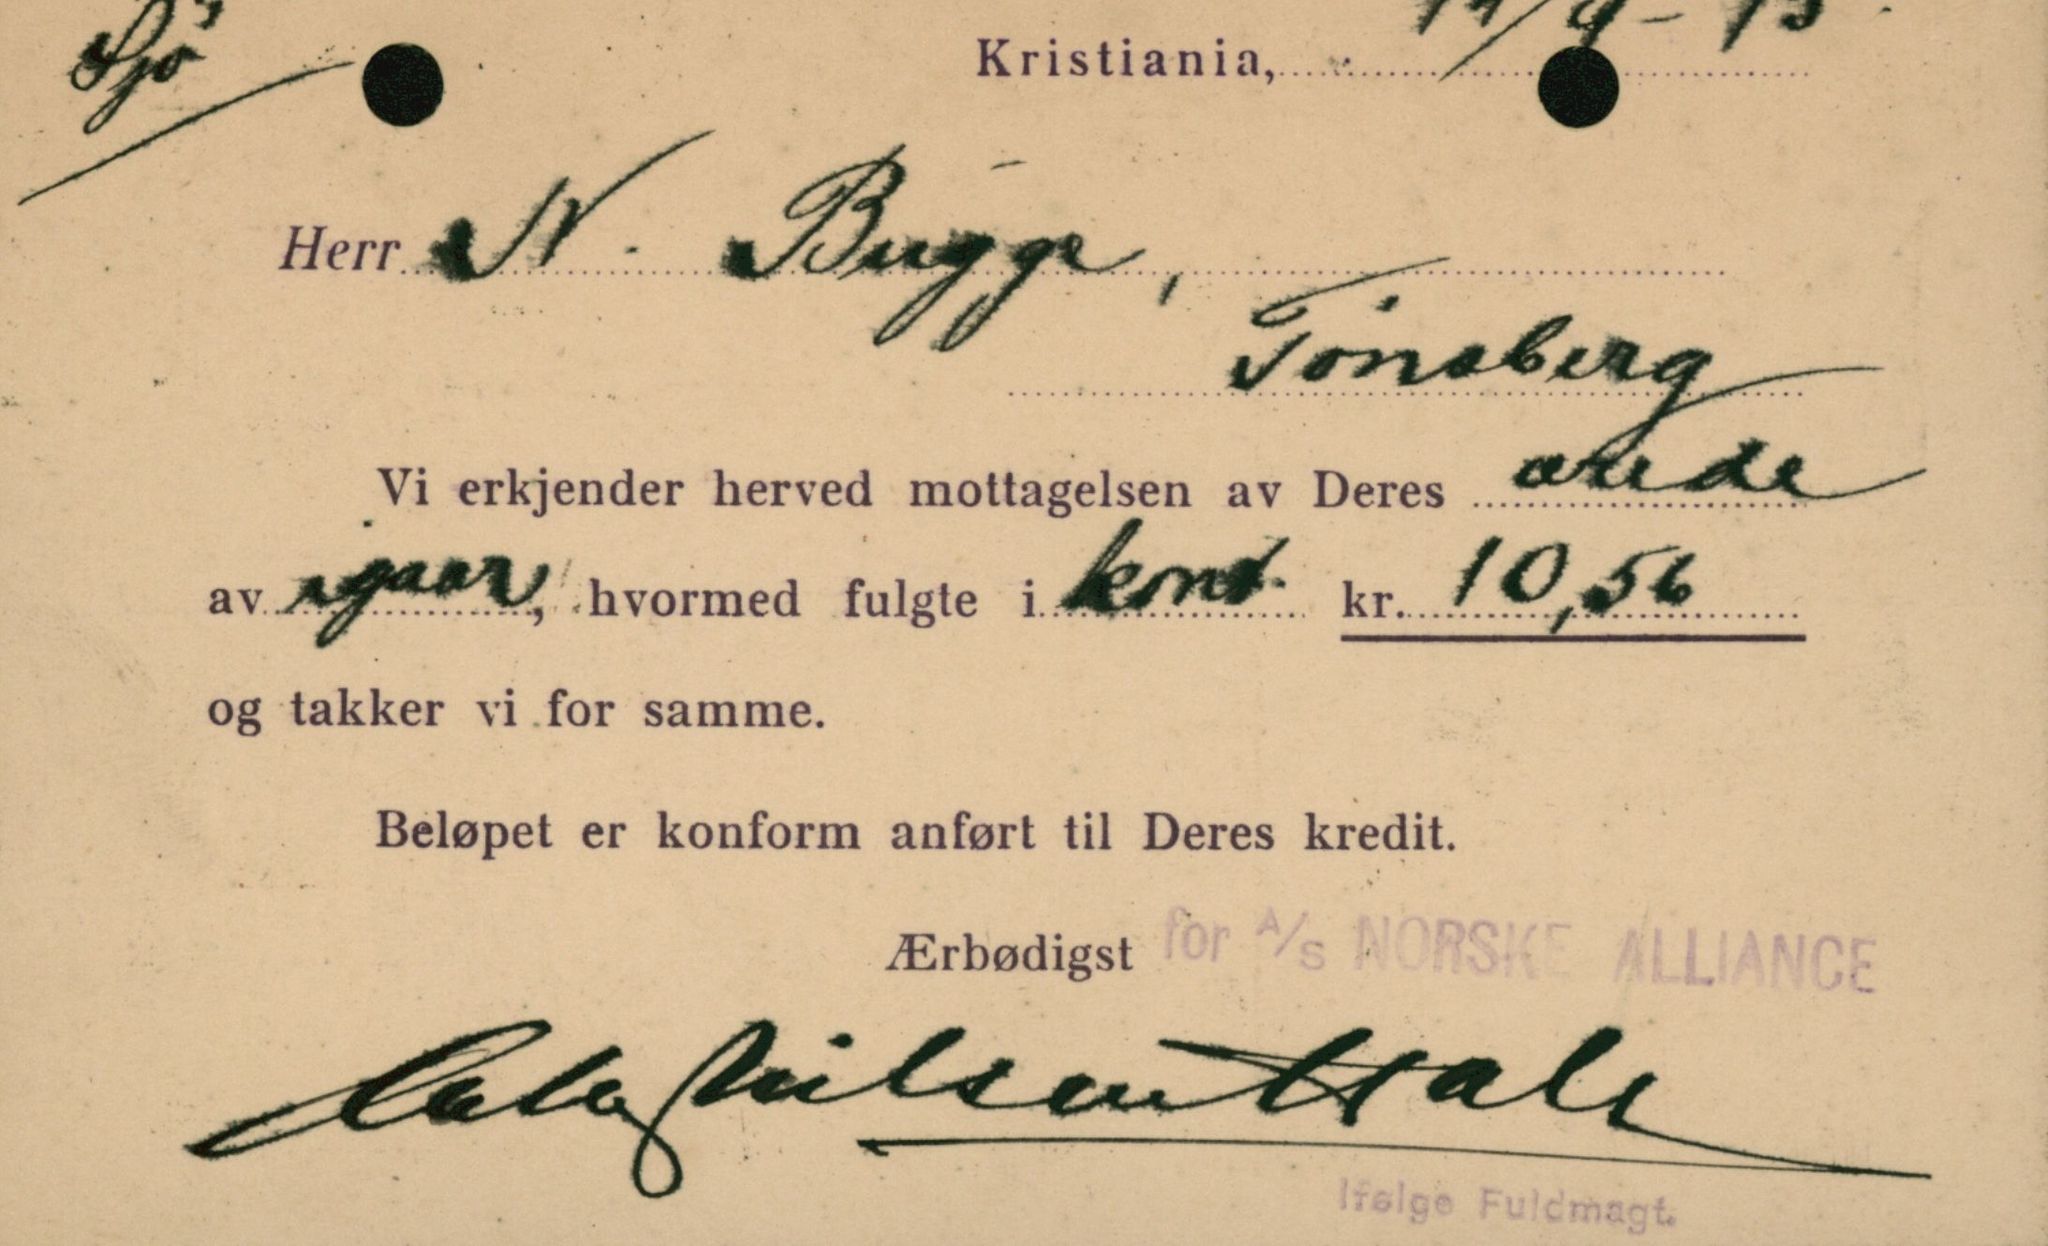 Sjö
Kristiania, 14/9-15.
Herr N. Bugge,
Tönsberg
Vi erkjender herved mottagelsen av Deres ærede
av igaar, hvormed fulgte i kont. kr. 10,56
og takker vi for samme.
Beløpet er konform anført til Deres kredit.
Ærbødigst for A/S NORSKE ALLIANCE
Nilsen
Ifølge Fuldmagt.